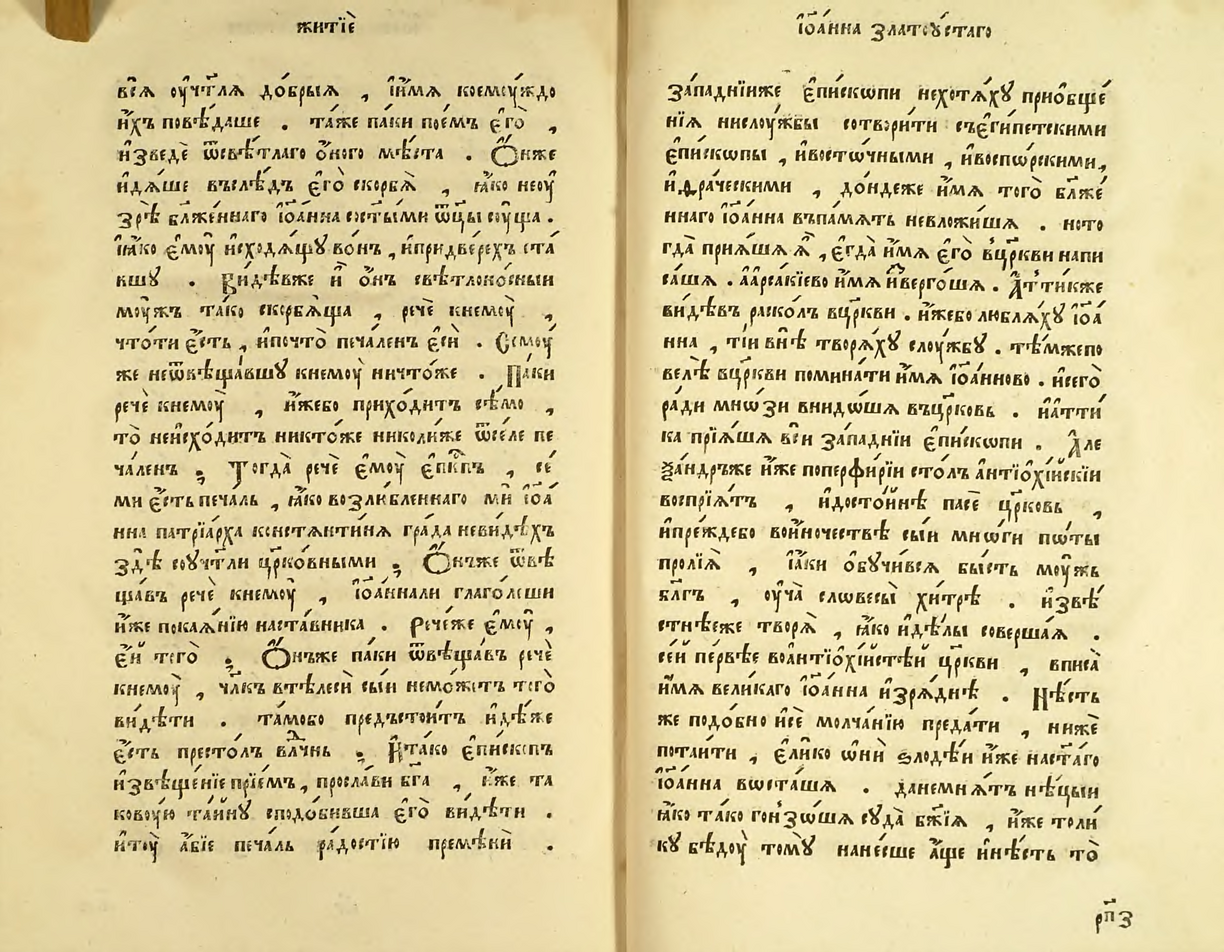 житїѐ
всѧ̀ оу҆чт҃лѧ до́брыѧ , і҆и҆́мѧ коемоу́ждо
и҆́хъ повѣ́даше . та́же паки пое́мъ є҆го̀ ,
и҆зведѐ ѿсвѣ́тлаго ѻ҆́ного мѣ́ста . Ѻ҆́нже
и҆дѧ́ше въслѣ́дъ є҆го̀ скорбѧ̀ , ꙗ҆́ко неоу҆
зрѣ̀ бл҃же́ннаго і҆ѡа́нна сост҃ы́ми ѿц҃ы соу́ща .
і҆ꙗ҆́ко є҆моу̀ и҆сходѧ́щꙋ во́нъ , и҆придве́рехъ ста́
вшꙋ . Ви́дѣвже и҆̀ ѻ҆́нъ свѣтлоно́сныи
моу́жъ та́ко скорбѧ́ща , речѐ кнемоу̀ ,
что́ти є҆́сть , и҆почто̀ печа́ленъ є҆сѝ . Семоу́
же неѿвѣща́вшꙋ кнемоу̀ ничто́же . Па́ки
речѐ кнемоу̀ , и҆́жебо прихо́дитъ сѣ́мо ,
то̀ неи҆схо́дитъ никто́же николи́же ѿсе́ле пе
ча́ленъ ; Тогда̀ речѐ є҆моу̀ є҆пⷭ҇къпъ , се́
ми є҆́сть печа́ль , ꙗ҆́ко возлюбленнаго мѝ і҆ѡа́
нна патрїа́рха констѧнти́нѧ гра́да неви́дѣхъ
здѣ̀ соу҆чт҃ли цр҃ко́вными ; Ѻ҆́нъже ѿвѣ
ща́въ речѐ кнемоу̀ , і҆ѡа́ннали глаго́леши
и҆́же покаѧ́нїю наста́вника . Рече́же є҆моу̀ ,
є҆́и того̀ ; Ѻ҆́нъже паки ѿвѣща́въ речѐ
кнемоу̀ , чл҃къ втѣлесѝ сы́и немо́жетъ того̀
ви́дѣти . та́мобо предъстои́тъ и҆дѣ́же
є҆́сть престо́лъ влⷣчнь ; И҆та́ко є҆пи́скопъ
и҆звѣще́нїе прїе́мъ , просла́ви бг҃а , и҆́же та
ковоу́ю та́йнꙋ сподо́бивша є҆го̀ ви́дѣти .
и҆тоу̀ а҆́бїе печа́ль ра́достїю премѣнѝ .
і҆ѡа́нна златоу́стаго
За́паднїиже є҆пи́скопи нехотѧ́хꙋ приѻбще́
нїѧ нислоу́жбы сотвори́ти съе҆ги́петскими
є҆пи́скопы , и҆восто́чными , и҆воспѡ́рскими ,
и҆драческими , до́ндеже и҆́мѧ того̀ бл҃же́
ннаго і҆ѡа́нна въпа́мѧть невложи́шѧ . ното
гда̀ приѧ́шѧ ѧ҆̀ , є҆гда̀ и҆́мѧ є҆го̀ вцр҃кви напи
са́шѧ . а҆арса́кїево и҆́мѧ и҆зверго́шѧ . А҆́ттикже
ви́дѣвъ раско́лъ вцр҃кви . и҆́жебо люблѧ́хꙋ і҆ѡа́
нна , ті́и внѣ̀ творѧ́хꙋ слоу́жбꙋ . тѣ́мжепо
велѣ̀ вцр҃кви помина́ти и҆́мѧ і҆ѡа́нново . и҆сего̀
ра́ди мно́зи внидо́шѧ въцр҃ковь . и҆а҆тти́
ка прїѧ́шѧ всѝ за́паднїи є҆пи́скопи . А҆ле
ѯа́ндръже и҆́же поперфи́рїи сто́лъ а҆нтїѻхі́искїи
воспрїѧ́тъ , и҆досто́йнѣ пасѐ цр҃ковь ,
и҆пре́ждебо вои́ночествѣ сы́и мно́ги по́ты
пролїѧ̀ , і҆а́ки ѻ҆бꙋчи́всѧ бы́сть моу́жь
бл҃гъ , оу҆ча̀ словесы̀ хи́трѣ . и҆звѣ́
стнѣеже творѧ̀ , ꙗ҆́ко и҆дѣ́лы соверша́ѧ .
се́й пе́рвѣе воа҆нтїѻхі́йстѣй цр҃кви , вписа̀
и҆́мѧ вели́каго і҆ѡа́нна и҆зрѧ́днѣ . Нѣ́сть
же подо́бно и҆сѐ молча́нїю преда́ти , нижѐ
потаи́ти , є҆ли́ко ѡ҆нѝ ѕлодѣ́и и҆́же наст҃а́го
і҆ѡа́нна воста́шѧ . да́немнѧтъ нѣ́цыи
ꙗ҆́ко та́ко гонзо́шѧ сꙋда̀ бж҃їѧ , и҆́же толи
кꙋ бѣдоу̀ томꙋ̀ нане́сше а҆́ще и҆нѣ́сть то̀
рп҃з